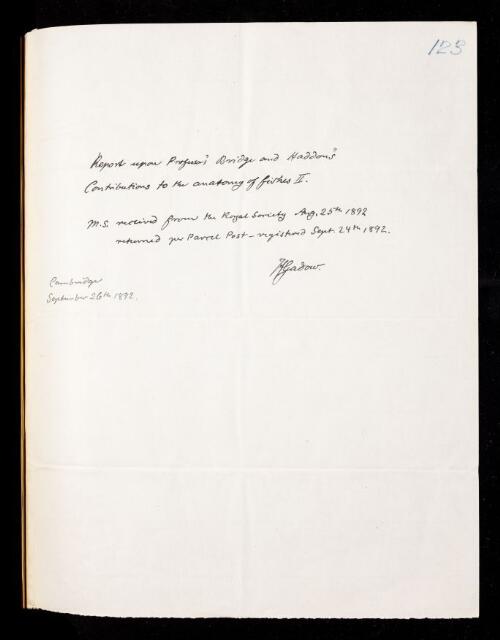 123
Report upon Profess's Bridge and Haddon's
Contributions to the anatomy of fishes II.
M.S. received from the Royal Society Aug. 25th 1892
returned per Parcel Post - registered Sept. 24th 1892.
HGadow.
Cambridge
September 26th 1892.